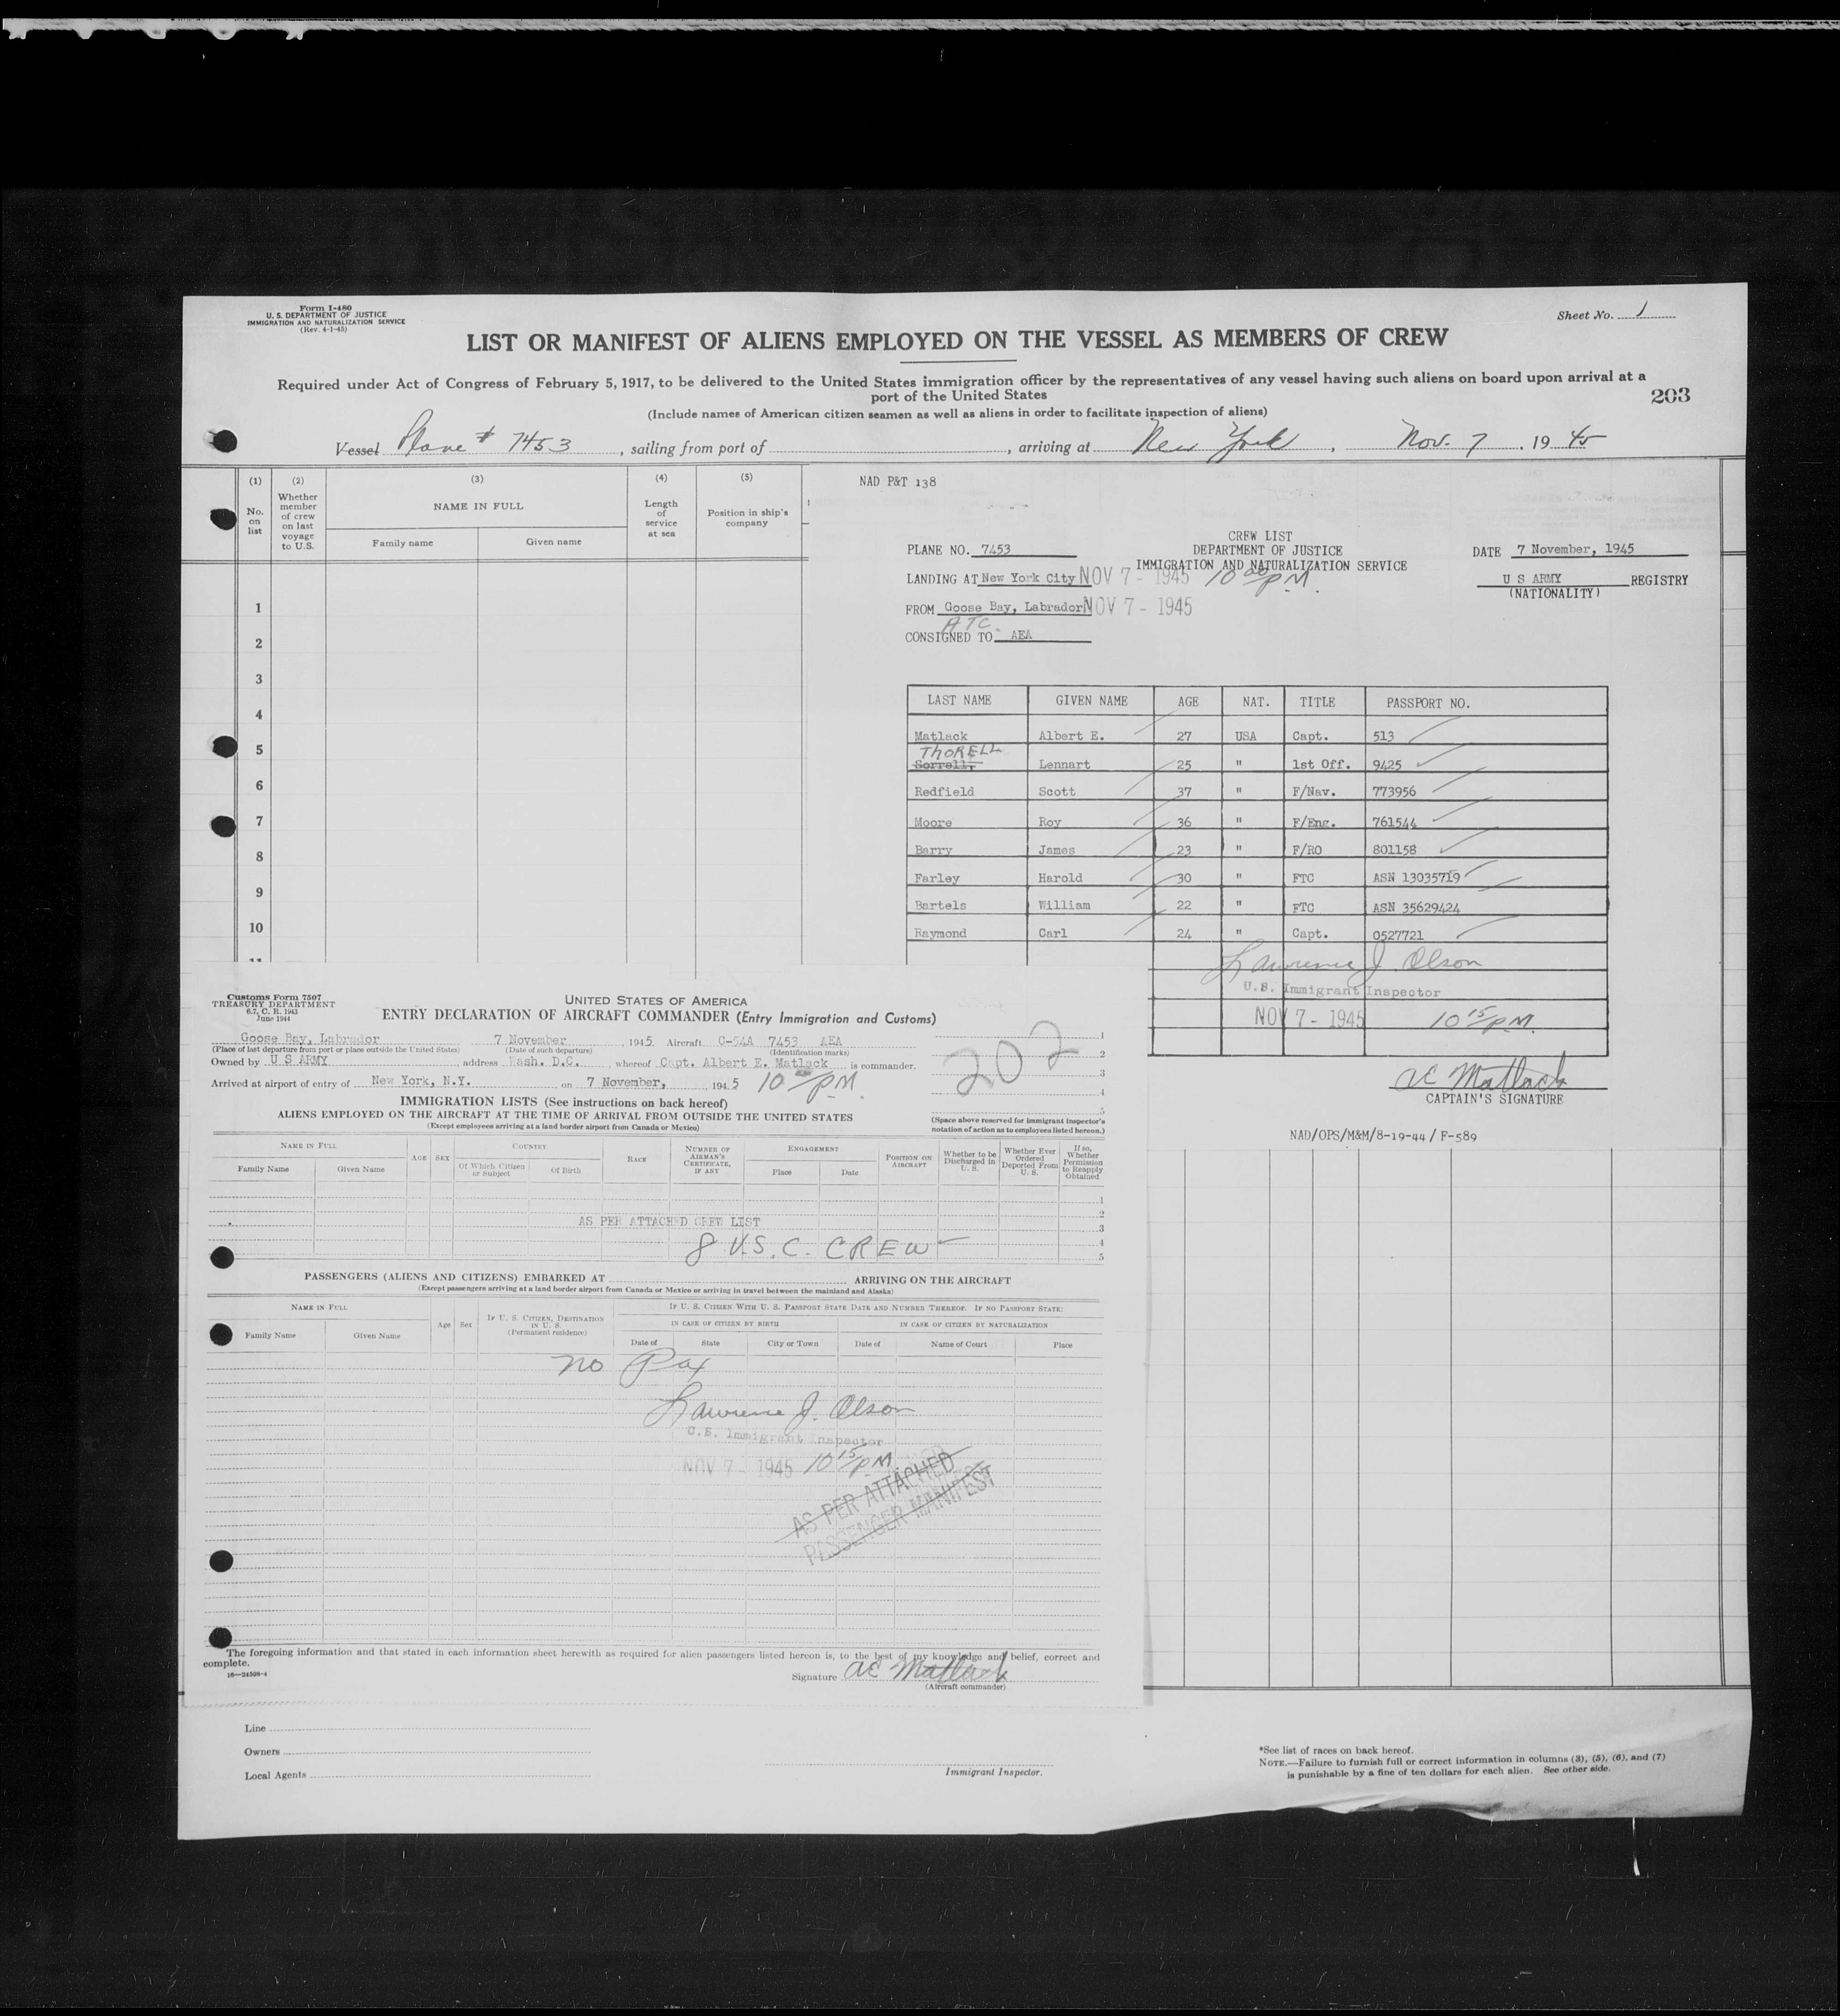 Form I-480
U. S. DEPARTMENT OF JUSTICE
IMMIGRATION AND NATURALIZATION SERVICE
(Rev. 4-1-45)
Sheet No. 1
LIST OR MANIFEST OF ALIENS EMPLOYED ON THE VESSEL AS MEMBERS OF CREW
Required under Act of Congress of February 5, 1917, to be delivered to the United States immigration officer by the representatives of any vessel having such aliens on board upon arrival at a
port of the United States
203
(Include names of American citizen seamen as well as aliens in order to facilitate inspection of aliens)
Vessel Plane # 7453, sailing from port of , arriving at New York, Nov. 7, 1945
(1) (2) (3) (4) (5)
No. on list
Whether member of crew on last voyage to U.S.
NAME IN FULL
Family name Given name
Length of service at sea
Position in ship's company
1
2
3
4
5
6
7
8
9
10
11
NAD P&T 138
CREW LIST
DEPARTMENT OF JUSTICE
IMMIGRATION AND NATURALIZATION SERVICE
PLANE NO. 7453
DATE 7 November, 1945
LANDING AT New York City NOV 7 - 1945 10 00 PM.
U S ARMY REGISTRY
(NATIONALITY)
FROM Goose Bay, Labrador NOV 7 - 1945
ATC
CONSIGNED TO AEA
LAST NAME GIVEN NAME AGE NAT. TITLE PASSPORT NO.
Matlack Albert E. 27 USA Capt. 513
THORELL
Sorrell, Lennart 25 " 1st Off. 9425
Redfield Scott 37 " F/Nav. 773956
Moore Roy 36 " F/Eng. 761544
Barry James 23 " F/RO 801158
Farley Harold 30 " FTC ASN 13035719
Bartels William 22 " FTC ASN 35629424
Raymond Carl 24 " Capt. 0527721
Lawrence J. Olson
U.S. Immigrant Inspector
NOV 7 - 1945 10 15 P.M.
AE Matlack
CAPTAIN'S SIGNATURE
NAD/OPS/M&M/8-19-44 / F-589
Customs Form 7507
TREASURY DEPARTMENT
6.7, C. R. 1943
June 1944
UNITED STATES OF AMERICA
ENTRY DECLARATION OF AIRCRAFT COMMANDER (Entry Immigration and Customs)
Goose Bay, Labrador 7 November, 1945 Aircraft C-54A 7453 AEA
(Place of last departure from port or place outside the United States) (Date of such departure) (Identification marks)
Owned by U S ARMY, address Wash. D.C., whereof Capt. Albert E. Matlack is commander.
Arrived at airport of entry of New York, N.Y. on 7 November, 1945 10 00 PM.
1
2
3
4
5
202
(Space above reserved for immigrant inspector's notation of action as to employees listed hereon.)
IMMIGRATION LISTS (See instructions on back hereof)
ALIENS EMPLOYED ON THE AIRCRAFT AT THE TIME OF ARRIVAL FROM OUTSIDE THE UNITED STATES
(Except employees arriving at a land border airport from Canada or Mexico)
NAME IN FULL
Family Name Given Name
AGE SEX
COUNTRY
Of Which Citizen or Subject Of Birth
RACE
NUMBER OF AIRMAN'S CERTIFICATE, IF ANY
ENGAGEMENT
Place Date
POSITION ON AIRCRAFT
Whether to be Discharged in U. S.
Whether Ever Ordered Deported From U. S.
If so, Whether Permission to Reapply Obtained
1
2
3
4
5
AS PER ATTACHED CREW LIST
8 U.S.C. CREW
PASSENGERS (ALIENS AND CITIZENS) EMBARKED AT ARRIVING ON THE AIRCRAFT
(Except passengers arriving at a land border airport from Canada or Mexico or arriving in travel between the mainland and Alaska)
NAME IN FULL
Family Name Given Name
Age Sex
IF U. S. CITIZEN, DESTINATION IN U. S. (Permanent residence)
IF U. S. CITIZEN WITH U. S. PASSPORT STATE DATE AND NUMBER THEREOF. IF NO PASSPORT STATE:
IN CASE OF CITIZEN BY BIRTH IN CASE OF CITIZEN BY NATURALIZATION
Date of State City or Town Date of Name of Court Place
No Pax
Lawrence J. Olson
U.S. Immigrant Inspector
NOV 7 - 1945 10 15 PM.
AS PER ATTACHED
PASSENGER MANIFEST
The foregoing information and that stated in each information sheet herewith as required for alien passengers listed hereon is, to the best of my knowledge and belief, correct and
complete.
16—24598-4
Signature AE Matlack
(Aircraft commander)
Line
Owners
Local Agents
Immigrant Inspector.
*See list of races on back hereof.
NOTE.—Failure to furnish full or correct information in columns (3), (5), (6), and (7)
is punishable by a fine of ten dollars for each alien. See other side.